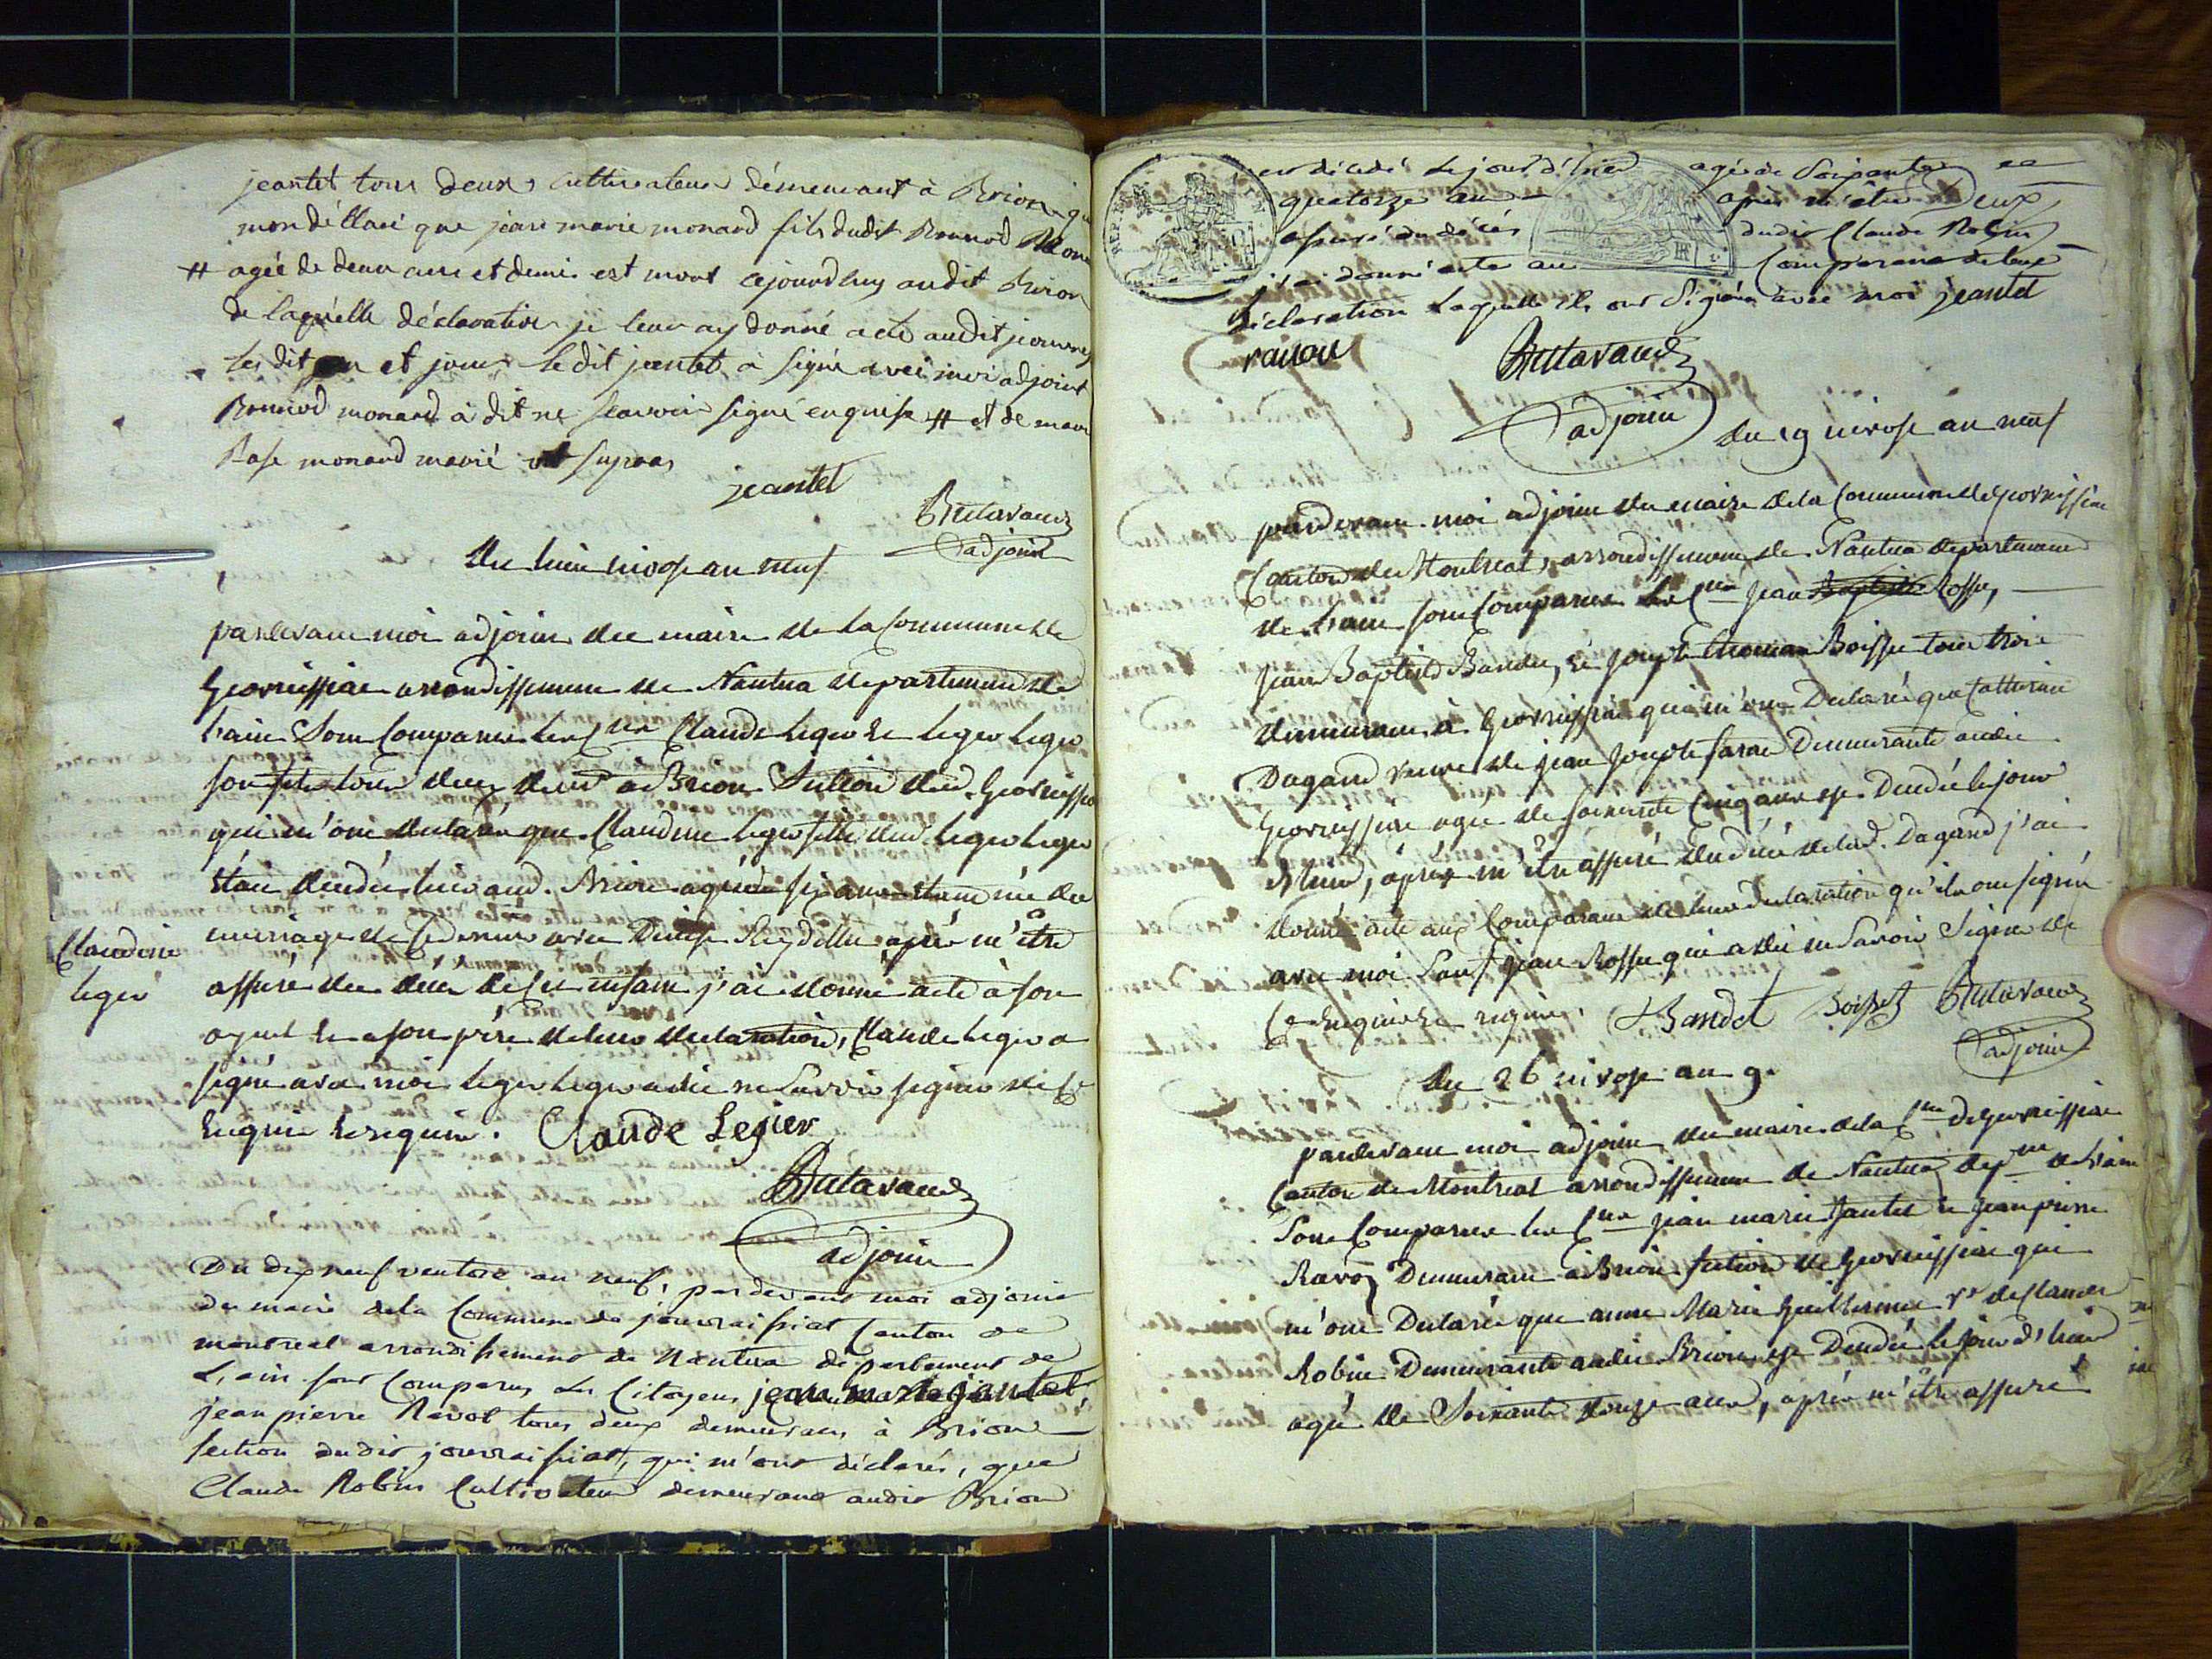 jeantet tous deux cultivateurs démeurant à Brion qui
mon déclaré que jean marie monard fils dudit Bonnod Mon
# agée de deux ans et demi est mort cejourdhuy audit Brion
de laquelle déclaration je leur ay donné acte audit
les dit an et jour ledit jeantet à signé avec moi adjoint
monard à dit ne scavoir signé enquise # et de marie
Rose monard marié ut supra
jeantet
Butavand
adjoint
Du huit nivose an neuf
pardevant moi adjoint du maire de la Commune de
Geovreissiat arrondissement de Nantua departement de
l'ain Sont Comparus les Cens Claude leger et leger leger
son fils tous deux demt à Brion Section dud. Geovreissiat
qui m'ont declaré que Claudine leger fille dud. leger leger
étoit decedée hier aud. Brion agée de six ans étant née du
mariage de ce dernier avec Denise Reydellet après m'être
Claudine
leger
assuré du décès de cet enfant j'ai donné acte à son
ayeul et a son père de leur declaration, Claude leger a
signé avec moi leger leger a dit ne Savoir signer de ce
Enquis et requis. Claude Legier
Butavand
adjoint
Du dix neuf ventose an neuf, pardevant moi adjoint
du maire dela Commune de jouvraissiat Canton de
montreal arrondissement de Nantua département de
L'ain sont Comparus les Citoyens jean marie jantet
jean pierre Ravot tous deux demeurans à Brion
section dudit jouvraissiat, qui m'ont déclarés, que
Claude Robin Cultivateur demeurant audit Brion
est décédé le jour d'hier agé de Soixante et
quatorze ans après m'être Deux
assuré du décès dudit Claude Robin
j'ai donné acte au Comparans de leur
déclaration laquelle ils ont Signés avec moi jeantet
ravou
Butavand
adjoint
du 19 nivose an neuf
pardevant moi adjoint du maire dela Commune de Geovreissiat
Canton de Montreal, arrondissement de Nantua departement
de l'ain sont Comparus les Cens Jean Baptiste Rosse,
Jean Baptiste Bandet, et Joseph Thomas Boisset tous trois
demeurans à Geovreissiat qui m'ont Declaré que Catherine
Dagand veuve de jean Joseph Demeurante audit
Geovreissiat agée de soixante Cinq ans est Decedée le jour
d'hier, après m'être assuré du décès de lad. Dagand j'ai
donné acte aux Comparans de leur declaration qu'ils ont signée
avec moi Sauf jean Rosse qui a dit ne Savoir Signer de
Ce Enquis et requis. Bandet Boisset Butavand
adjoint
du 26 nivose an 9.
pardevant moi adjoint du maire dela Cne de Geovreissiat
Canton de Montreal arrondissement de Nantua depnt de l'ain
Sont Comparus les Cens jean marie Jantet et Jean pierre
Ravoz Demeurans à Brion section de Geovreissiat qui
m'ont Declaré que anne Marie Guillermet ve de Claude
Robin Demeurante audit Brion est Decedée le jour d'hier
agée de Soixante douze ans, après m'être assuré